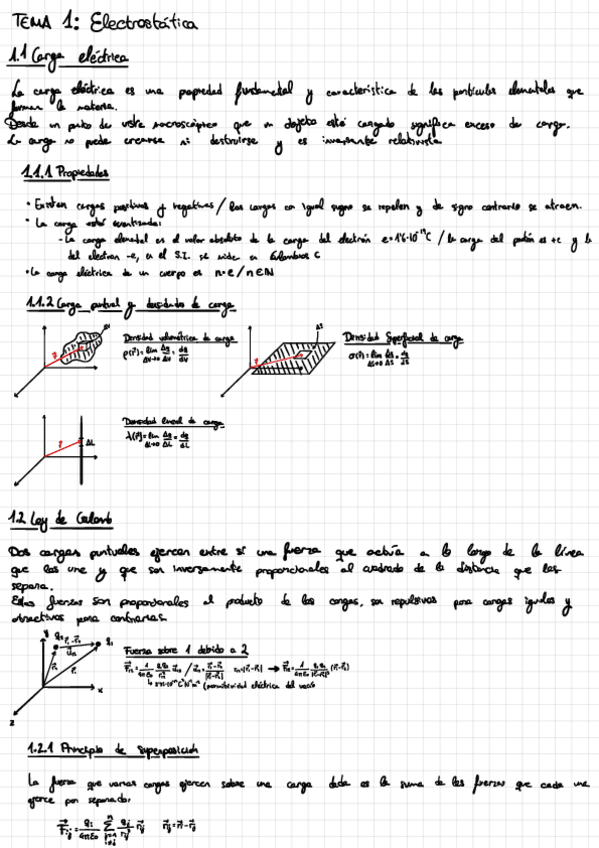 TEMA 1: Electrostática
1.1 Carga eléctrica
La carga eléctrica es una propiedad fundamental y característica de las partículas elementales que
forman la materia.
Desde un punto de vista macroscópico que un objeto esté cargado significa exceso de carga.
La carga no puede crearse ni destruirse y es invariante relativista
1.1.1 Propiedades
• Existen cargas positivas y negativas / las cargas con igual signo se repelen y de signo contrario se atraen.
• La carga está cuantizada:
- La carga elemental es el valor absoluto de la carga del electrón e=1'6·10⁻¹⁹C / la carga del protón es +e y la
del electron -e, en el S.I. se mide en Culombios C
• La carga eléctrica de un cuerpo es n·e / n∈N
1.1.2 Carga puntual y densidades de carga
Densidad volumétrica de carga
ρ(r⃗)= lim Δq/ΔV = dq/dV
ΔV→0
ΔS
Densidad Superficial de carga
σ(r⃗)= lim Δq/ΔS = dq/dS
ΔS→0
Densidad lineal de carga
λ(r⃗)= lim Δq/ΔL = dq/dL
ΔL→0
ΔL
1.2 Ley de Coulomb
Dos cargas puntuales ejercen entre sí una fuerza que actúa a lo largo de la línea
que las une y que son inversamente proporcionales al cuadrado de la distancia que las
separa.
Estas fuerzas son proporcionales al producto de las cargas, son repulsivas para cargas iguales y
atractivas para contrarias.
Y
X
Z
Fuerza sobre 1 debido a 2
(permitividad eléctrica del vacío
1.2.1 Principio de superposición
La fuerza que varias cargas ejercen sobre una carga dada es la suma de las fuerzas que cada una
ejerce por separado: